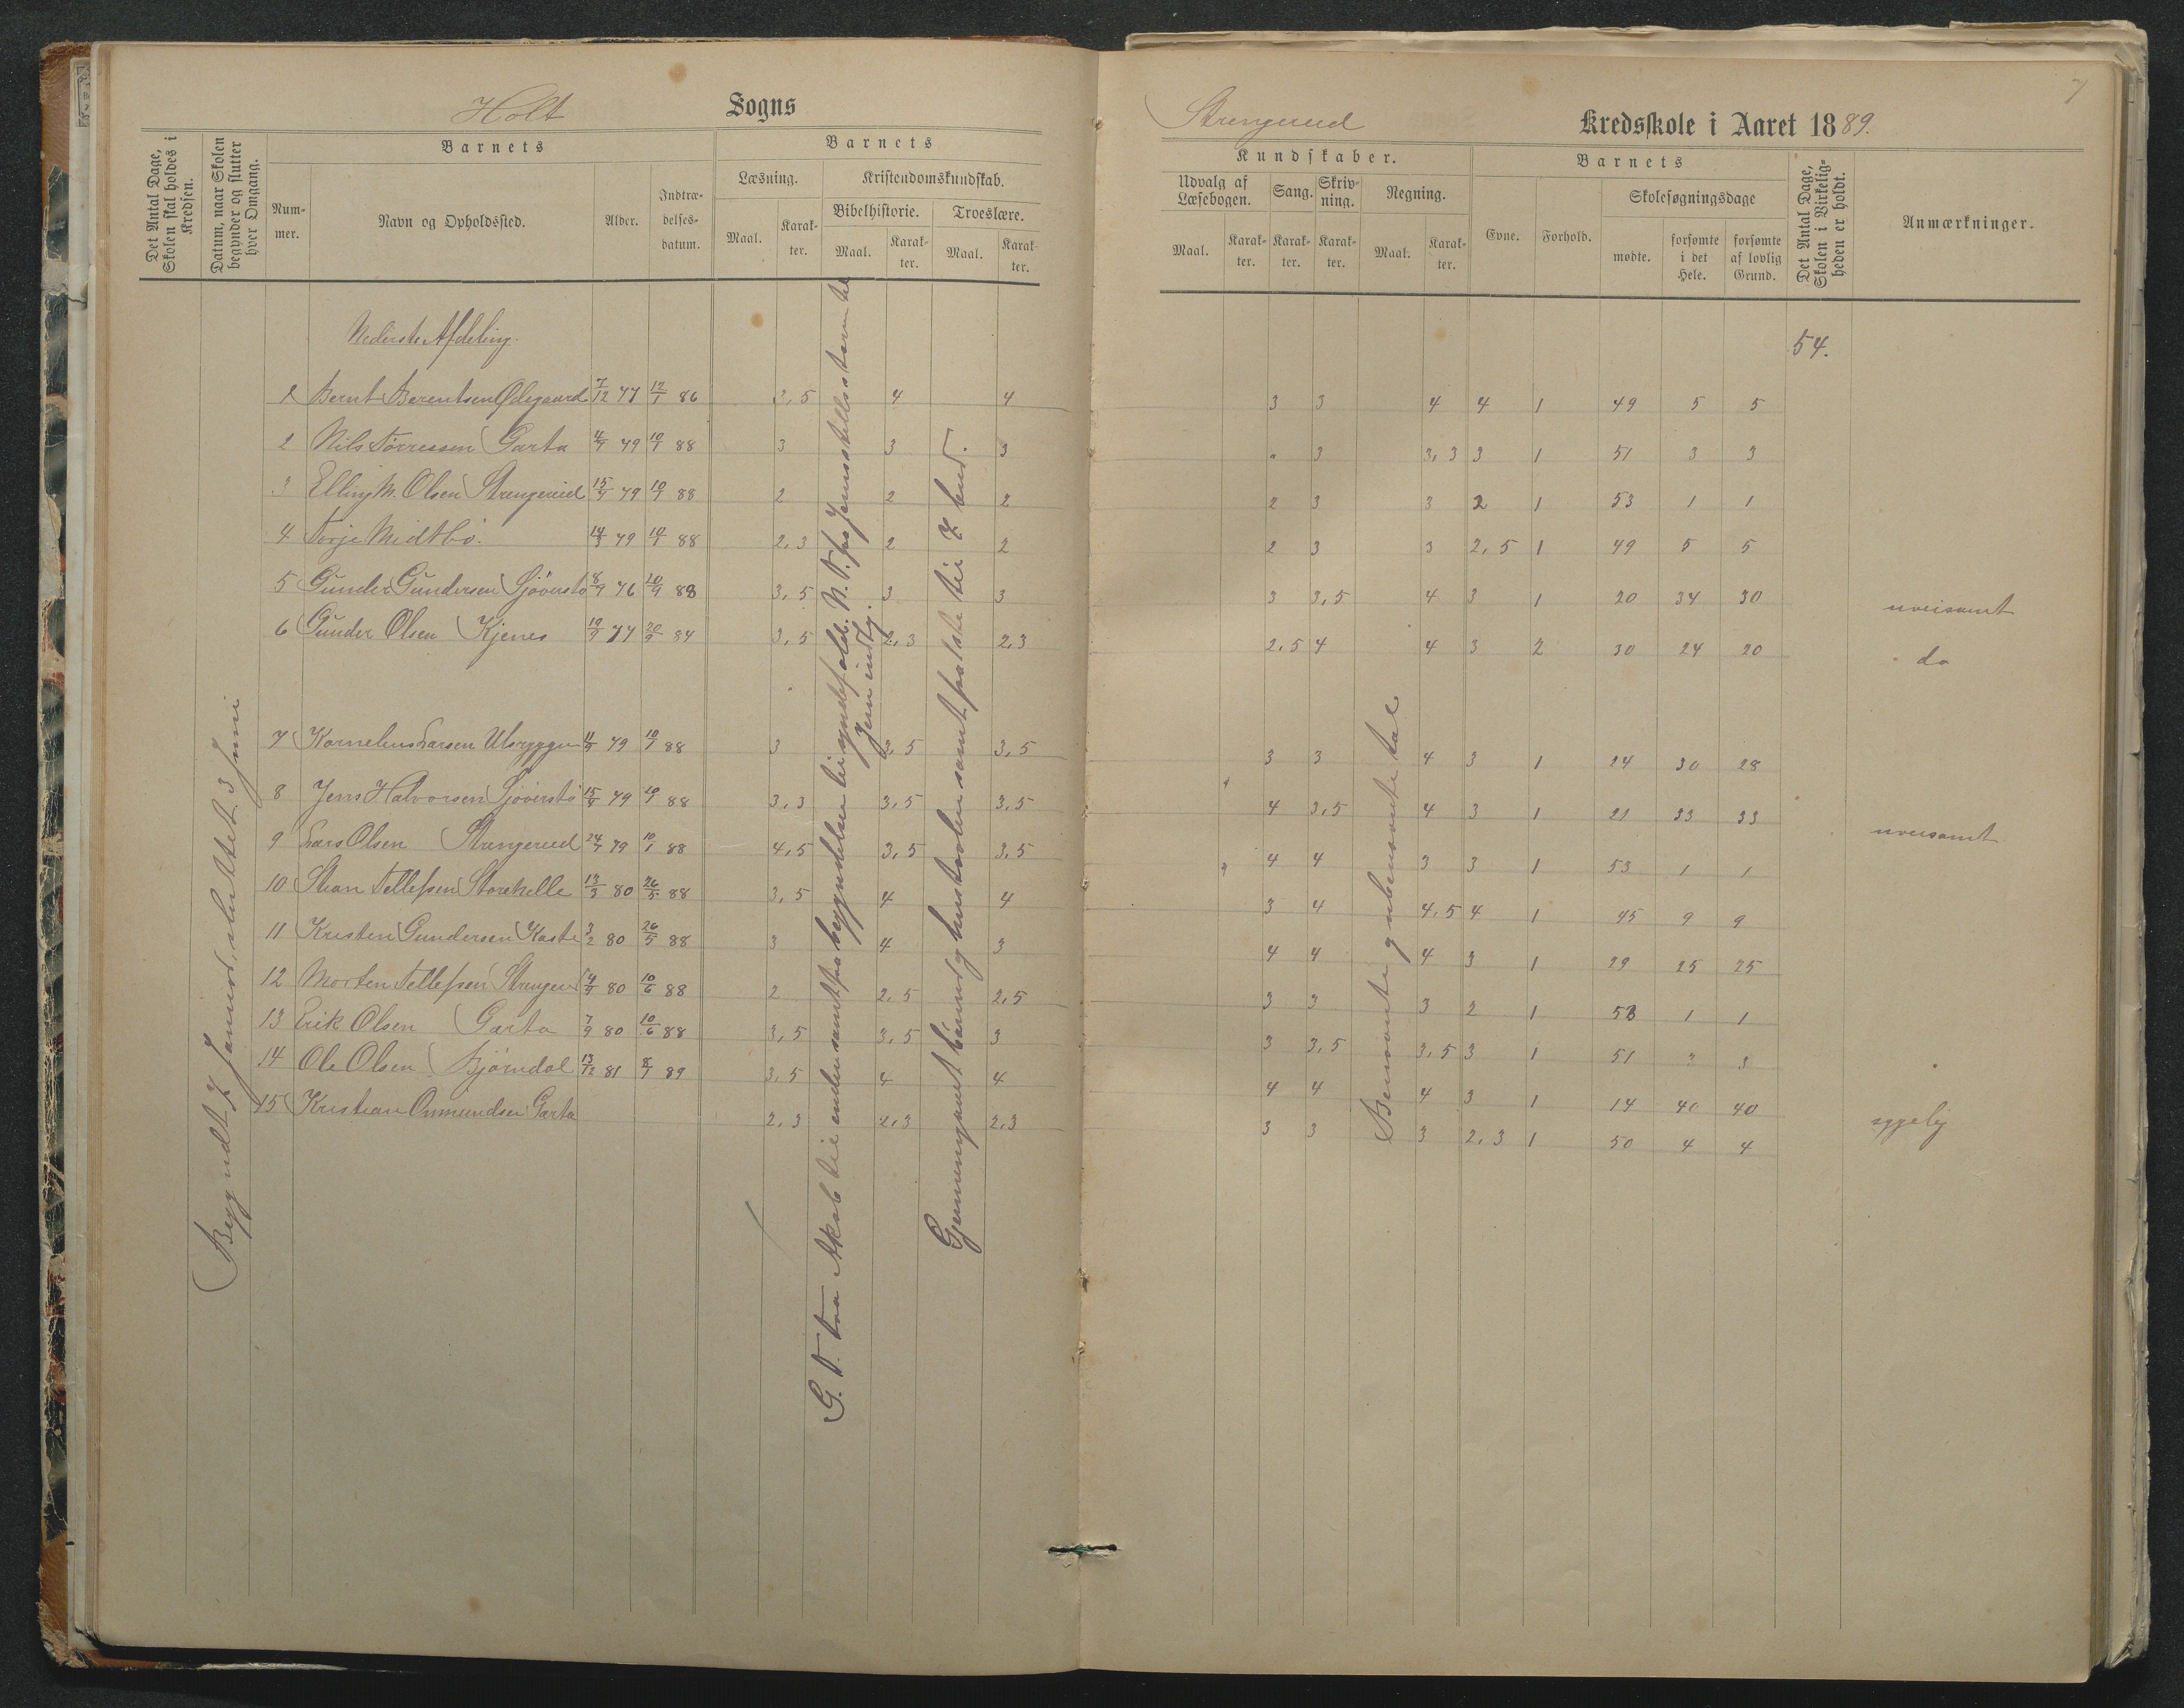 Holt Sogns
Det Antal Dage, Skolen skal holdes i Kredsen.
Datum, naar Skolen begynder og slutter hver Omgang.
Barnets
Nummer.
Navn og Opholdssted.
Alder.
Indtrædelsesdatum.
Barnets
Læsning.
Maal.
Karakter.
Kristendomskundskab.
Bibelhistorie.
Maal.
Karakter.
Troeslære.
Maal.
Karakter.
Begyndt 7 Januar, sluttet 3 Juni
Nederste Afdeling.
1 Bernt Berentsen Ødegaard 7/12 77 12/1 86 3,5 4 4
2 Nils Tørressen Garta 4/9 79 10/1 88 3 3 3
3 Elling M. Olsen Strengereid 15/9 79 10/1 88 2 2 2
4 Torje Midtbö. 14/3 79 10/1 88 2,3 2 2
5 Gunder Gundersen Sjöverstö 8/9 76 10/9 88 3,5 3 3
6 Gunder Olsen Kjenes 19/9 77 20/9 84 3,5 2,3 2,3
7 Kornelius Larsen 79 10/1 88 3 3,5 3,5
8 Jens Halvorsen Sjöverstö 15/9 79 10/1 88 3,3 3,5 3,5
9 Lars Olsen Strengereid 24/7 79 10/1 88 4,5 3,5 3,5
10 Stian Tellefsen Storekelle 13/3 80 26/5 88 3,5 4 4
11 Kristen Gundersen Kaste 3/2 80 26/5 88 3 4 3
12 Morten Tellefsen Strenger 80 10/6 88 2 2,5 2,5
13 Erik Olsen Garta 7/9 80 10/6 88 3,5 3,5 3
14 Ole Olsen Bjørndal 13/12 81 8/1 89 3,5 4 4
15 Kristian Onmundsen Garta 2,3 2,3 2,3
G. T. fra Akab til enden samt fra begyndelsen til syndefald. N. T. fra Jesus stiller stormen til
Jesu indtog.
Gjennemgaaet bönnen og hustavlen samt fra første til 7 bud.
7
Strengereid Kredsskole i Aaret 1889.
Kundskaber.
Udvalg af Læsebogen.
Maal.
Karakter.
Sang.
Karakter.
Skrivning.
Karakter.
Regning.
Maal.
Karakter.
Barnets
Evne.
Forhold.
Skolesøgningsdage
mødte.
forsømte i det Hele.
forsømte af lovlig Grund.
Det Antal Dage, Skolen i Virkeligheden er holdt.
Anmærkninger.
54.
3 3 4 4 1 49 5 5
" 3 3,3 3 1 51 3 3
2 3 3 2 1 53 1 1
2 3 3 2,5 1 49 5 5
3 3,5 4 3 1 20 34 30 uveisomt
2,5 4 4 3 2 30 24 20 do
3 3 4 3 1 24 30 28
4 3,5 4 3 1 21 33 33 uveisomt
4 4 3 3 1 53 1 1
3 4 4,5 4 1 45 9 9
4 4 4 3 1 29 25 25
3 3 3 2 1 53 1 1
3 3,5 3,5 3 1 51 3 3
4 4 4 3 1 14 40 40 sygelig
3 3 3 2,3 1 50 4 4
Benævnte og ubenævnte tal